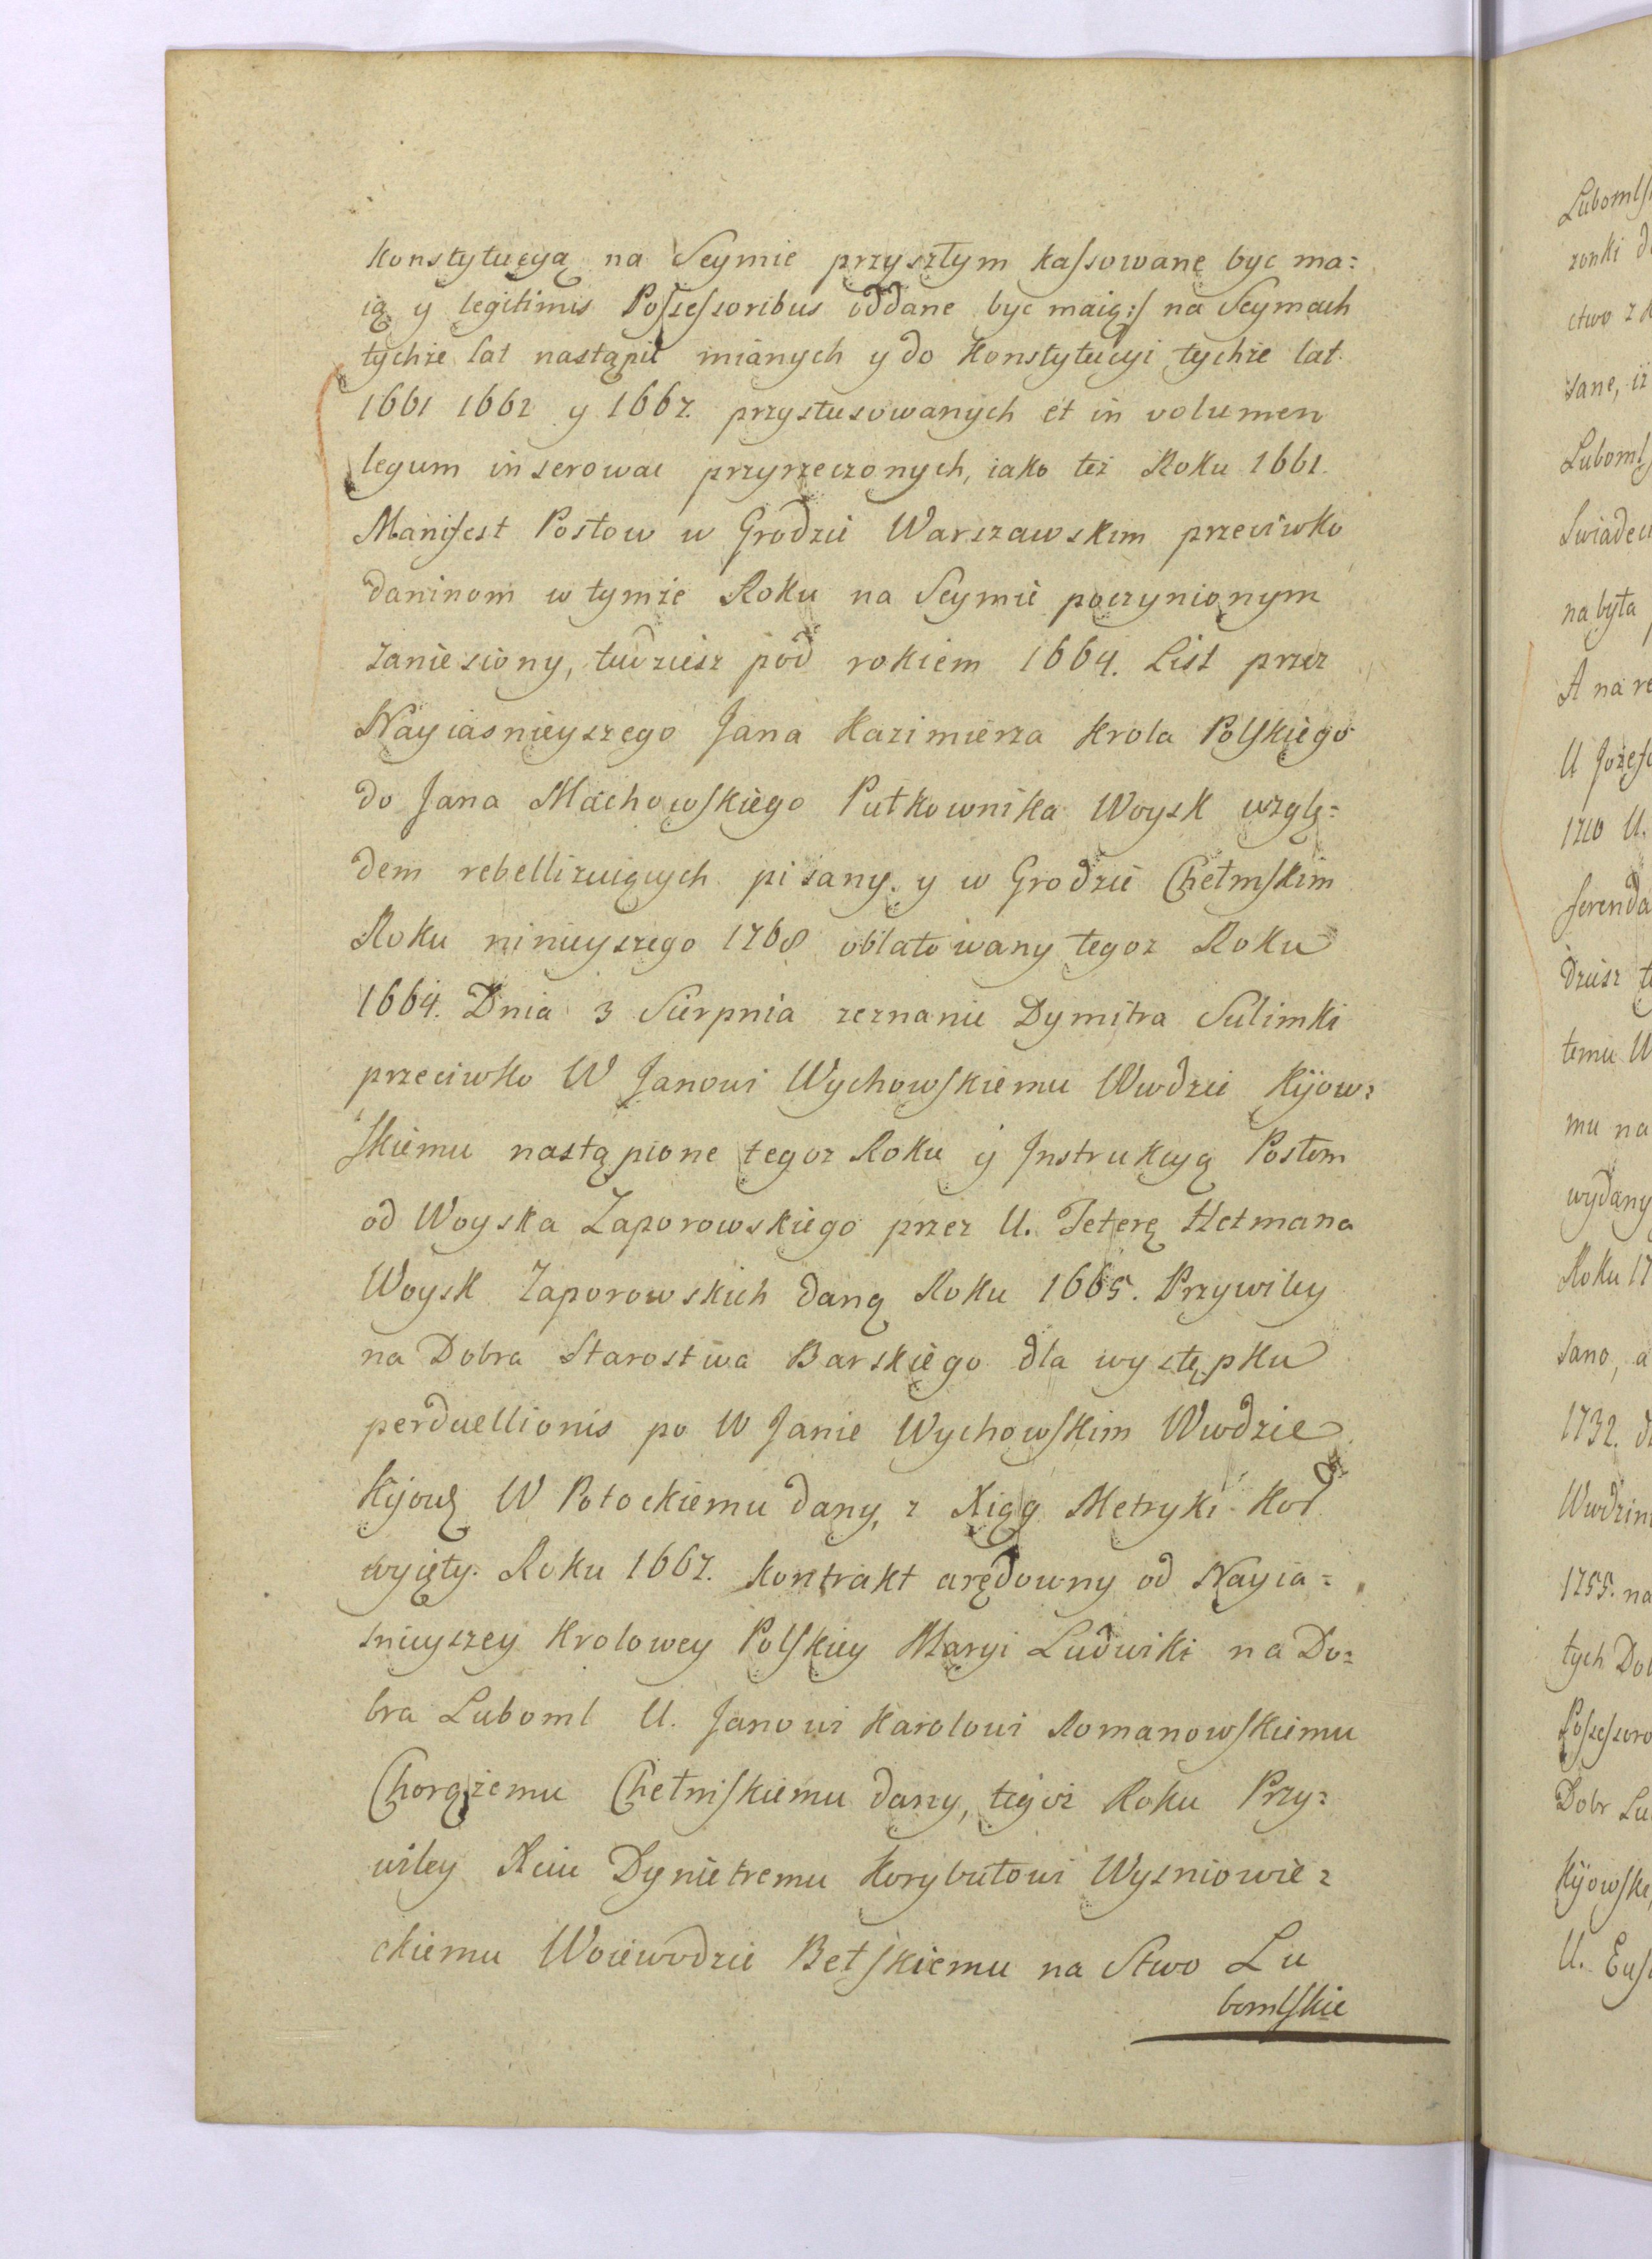 konstytucyą na Seymie przyszłym kassowane byc ma:
ią y legitimis Possessoribus oddane byc maią:/ na Seymach
tychże lat nastąpić mianych y do Konstytucyi tychże lat
1661 1662 y 1667. przystusowanych et in volumen
legum inserowac przyrzeczonych, iako też Roku 1661.
Manifest Posłow w Grodzie Warszawskim przeciwko
daninom w tymże Roku na Seymie poczynionym
zaniesiony, tudziesz pod rokiem 1664. List przez
Nayiasnieyszego Jana Kazimierza Krola Polskiego
do Jana Machowskiego Pułkownika Woysk wzglę:
dem rebellizuiących pisany. y w Grodzie Chełmskim
Roku ninieyszego 1768 oblatowany tegoż Roku
1664. Dnia 3 Sierpnia zeznanie Dymitra Sulimki
przeciwko W Janowi Wychowskiemu Wwdzie Kijow:
skiemu nastąpione tegoż Roku y Jnstrukcyą Posłom
od Woyska Zaporowskiego przez U. Teterę Hetmana
Woysk Zaporowskich daną Roku 1665. Przywiley
na Dobra Starostwa Barskiego dla występku
perduellionis po W Janie Wychowskim Wwdzie
Kijow W Potockiemu dany, z Xiąg Metryki Kor
wyięty. Roku 1667. kontrakt arędowny od Nayia:
snieyszey Krolowey Polskiey Maryi Ludwiki na Do:
bra Luboml U. Janowi Karolowi Romanowskiemu
Chorążemu Chełmskiemu dany, tegoż Roku Przy:
wiley Xciu Dymetremu Korybutowi Wyszniowie:
ckiemu Woiewodzie Bełskiemu na Stwo Lu
bomlskie
Luboml
zonki
ctwo z
sane, iż
Luboml
Swiadec
nabyta
A na
U Jozef
1710 U.
ferenda
dziesz
temu
mu na
wydany
Roku 17
sano, a
1732.
Wwdzin
1755. na
tych Dob
Possessoro
Dobr Lu
Kijowsk
U. Eus